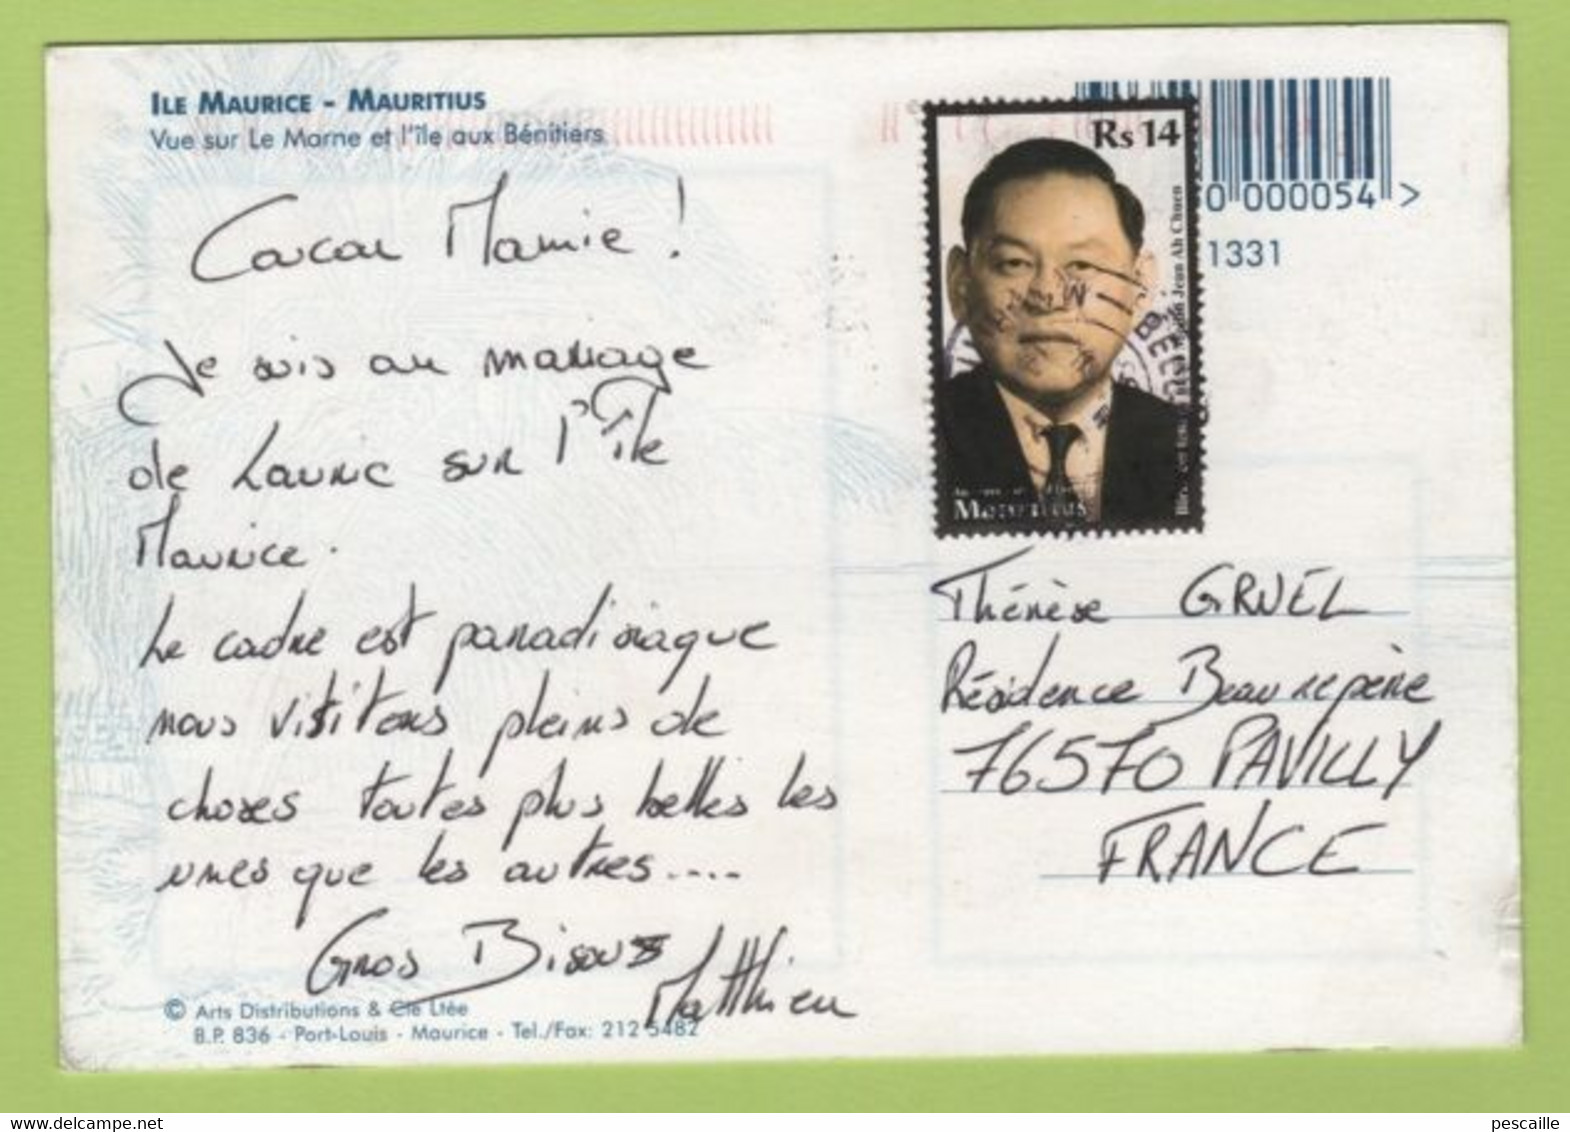 ILE MAURICE - MAURITIUS
Vue sur Le Morne et l'île aux Bénitiers
Coucou Mamie !
Je suis au mariage
de Lauric sur l'Île
Maurice.
Le cadre est paradisiaque
nous visitons pleins de
choses toutes plus belles les
unes que les autres....
Gros Bisous
Matthieu
© Arts Distributions & Cie Ltée
B.P. 836 - Port-Louis - Maurice - Tel./Fax: 212 5482
Rs 14
Jean Ah Chuen
Mauritius
0 000054 >
1331
Thérèse GRUEL
Résidence Beaurepère
76570 PAVILLY
FRANCE
pescaille